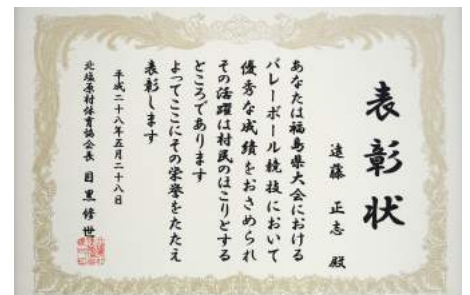 表彰状
遠藤 正志 殿
あなたは福島県大会における
バレーボール競技において
優秀な成績をおさめられ
その活躍は村民のほこりとする
ところであります
よってここにその栄誉をたたえ
表彰します
平成二十八年五月二十八日
北塩原村体育協会長 目黒修世